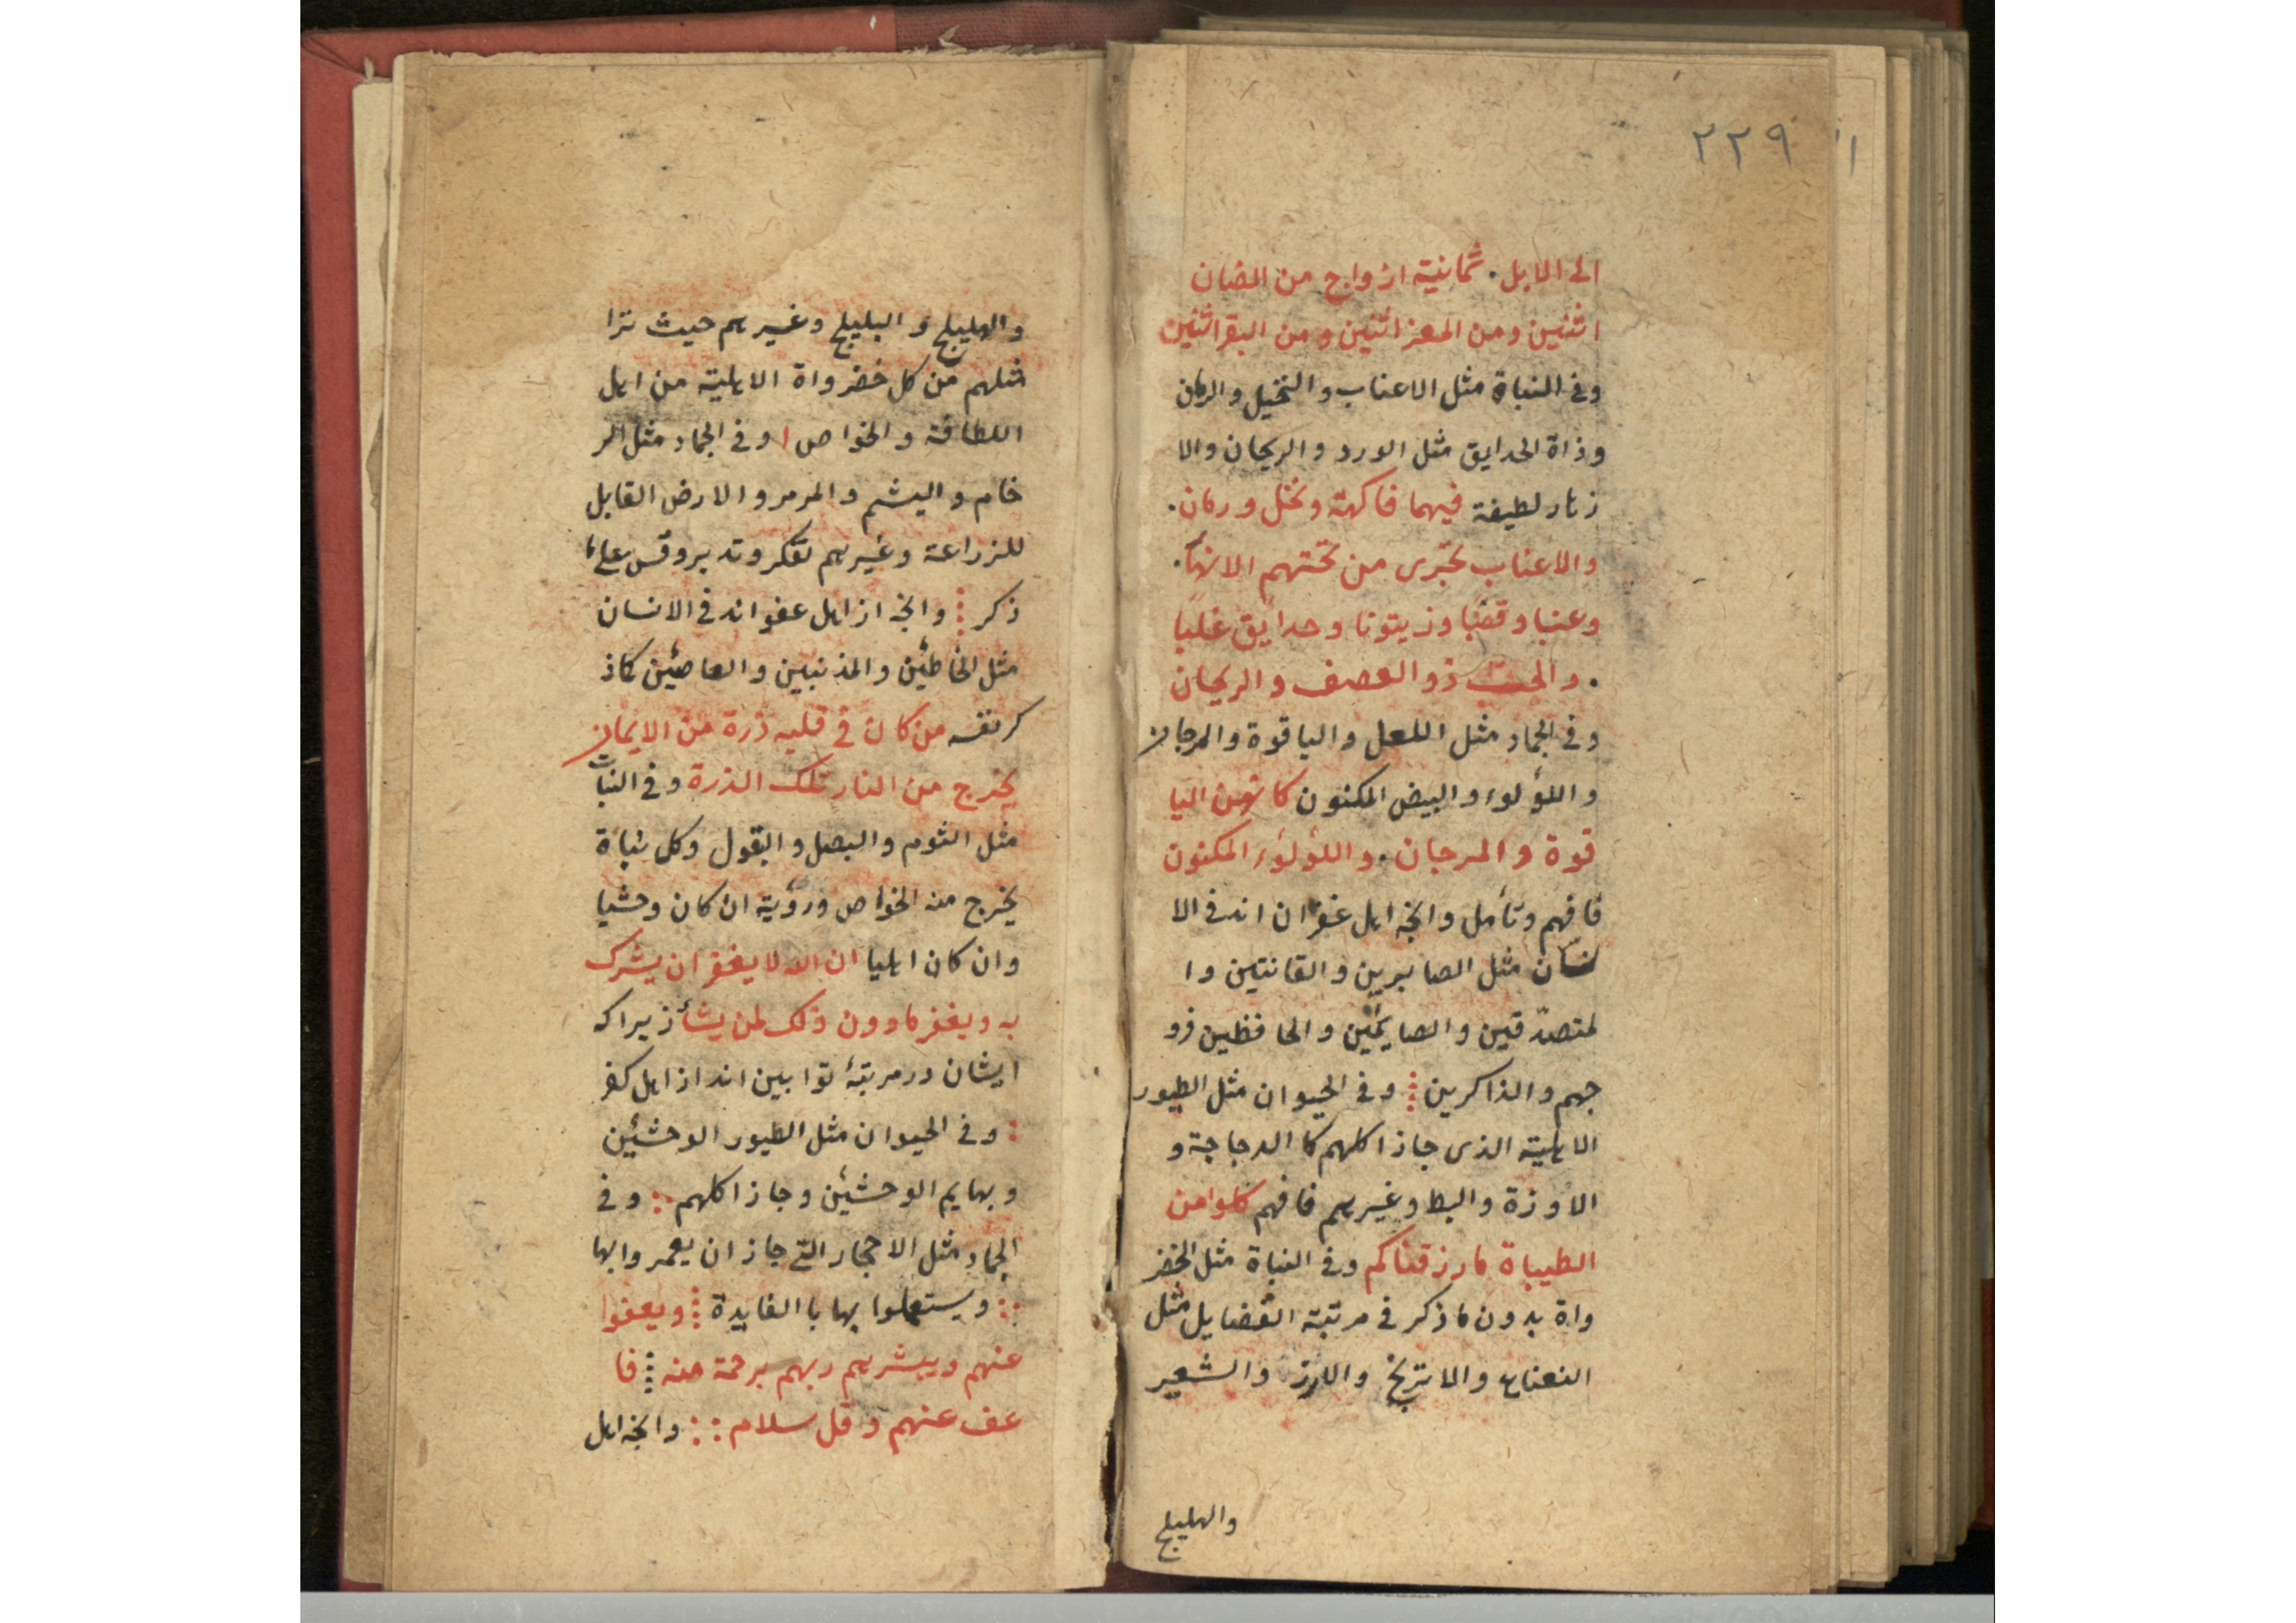 ٢٢٩
١١
الى الابل. ثمانية ازواج من الضان
اثنين ومن المعز اثنين ومن البقر اثنين
وفى النباة مثل الاعناب والنخيل والرمان
وذاة الحدايق مثل الورد والريحان والا
زهار لطيفة فيهما فاكهة ونخل ورمان.
والاعناب تجرى من تحتهم الانهار.
وعنبا وقضبًا وزيتونا وحدايق غلبا
. والحبّ ذو العصف والريحان
وفى الجماد مثل اللعل والياقوة والمرجان
واللؤلوء والبيض المكنون كانهن اليا
قوة والمرجان. واللؤلوء المكنون
فافهم وتأمل وانچه اهل غفران اند فى الا
نسان مثل الصابرين والقانتين وا
لمتصدّقين والصايمين والحافظين فرو
جهم والذاكرين وفى الحيوان مثل الطيور
الاهلية الذى جاز اكلهم كا الدجاجة و
الاوزة والبط وغيرهم فافهم كلوا من
الطيباة ما رزقناكم وفى النباة مثل الخضر
واة بدون ما ذكر فى مرتبة الفضايل مثل
النعناع والاترنج والارز والشعير
والهليلج
والهليلج و البليلج وغيرهم حيث ترا
مثلهم من كل خضرواة الاهلية من اهل
اللطافة والخواص وفى الجماد مثل الر
خام و اليشم والمرمر والارض القابل
للزراعة وغيرهم تفكر وتدبر وقس على ما
ذكر وانچه از اهل عفو اند فى الانسان
مثل الخاطئين والمذنبين والعاصين كاذ
كر نفسه من كان فى قلبه ذرة من الايمان
يخرج من النار تلك الذرة وفى النبات
مثل الثوم والبصل والبقول وكل نباة
يخرج منه الخواص ورؤية ان كان وحشيا
وان كان اهليا ان الله لا يغفر ان يشرك
به ويغفر ما دون ذلك لمن يشأ زيرا كه
ايشان در مرتبهٔ توابين اند از اهل كفر
وفى الحيوان مثل الطيور الوحشئين
وبهايم الوحشئين وجاز اكلهم وفى
الجماد مثل الاحجار التى جاز ان يعمروا بها
ويستعملوا بها با الفايدة ويعفوا
عنهم ويبشرهم ربهم برحمة منه فا
عف عنهم وقل سلام وانچه اهل